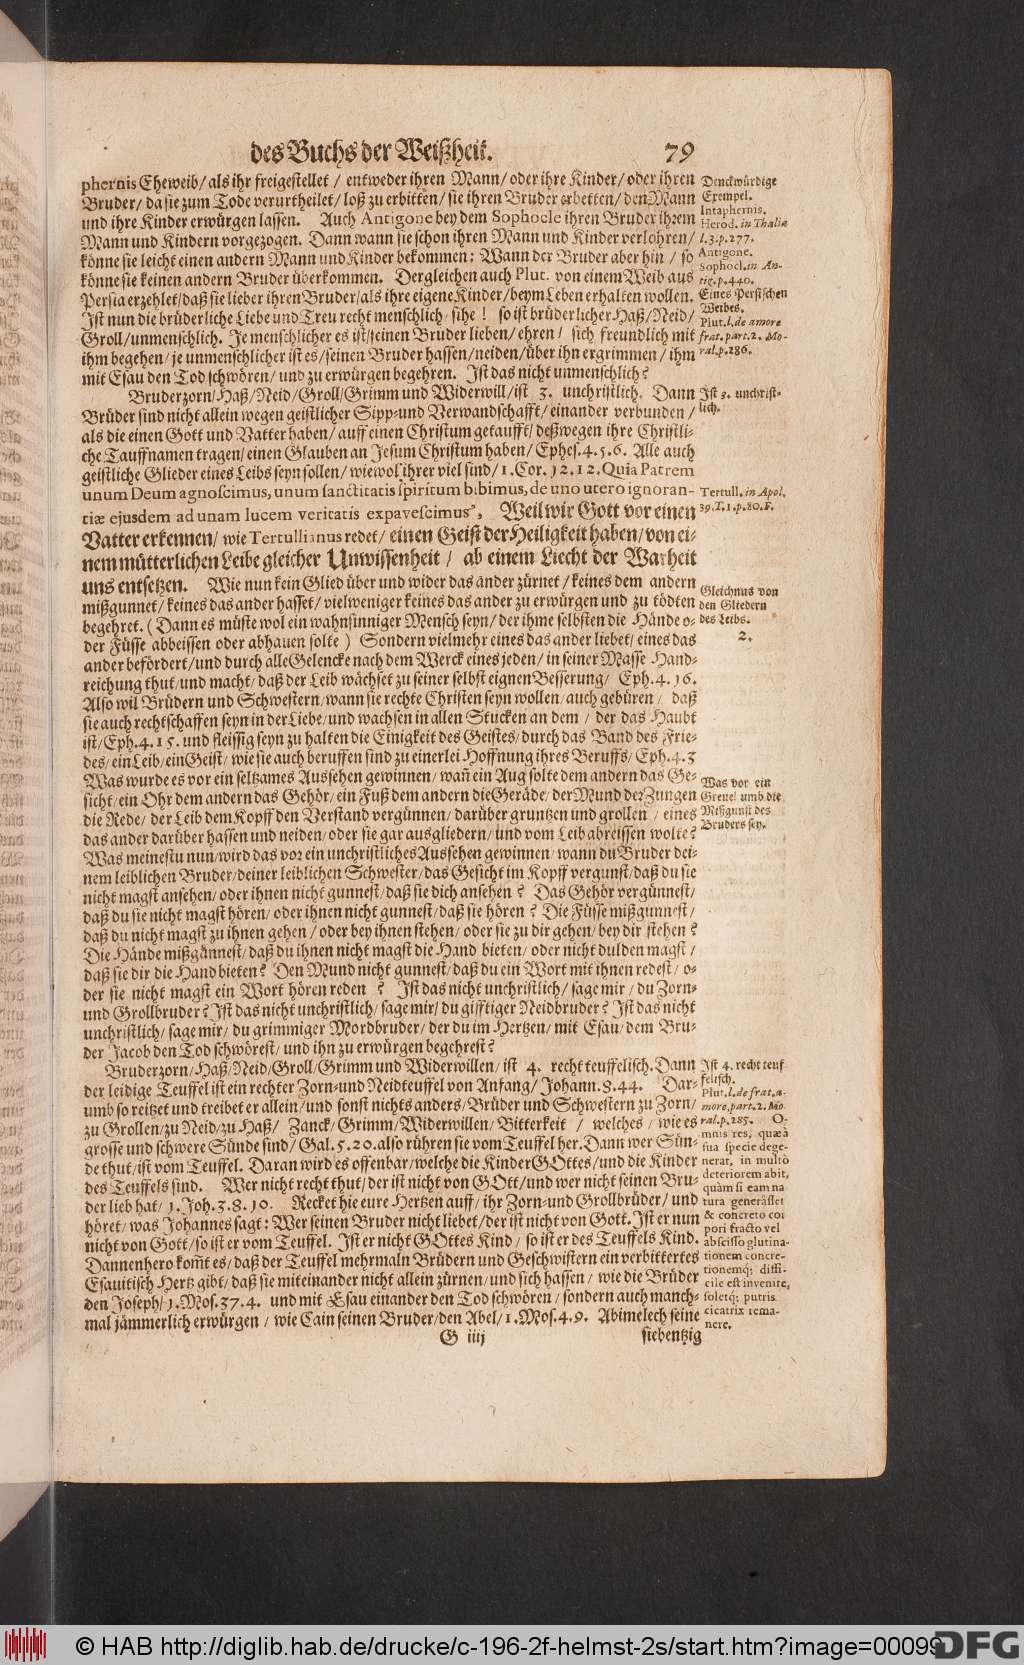 des Buchs der Weißheit. 79
phernis Eheweib/ als ihr freigestellet / entweder ihren Mann/ oder ihre Kinder/ oder ihren
Bruder/ da sie zum Tode verurtheilet/ loß zu erbitten/ sie ihren Bruder erbetten/ den Mann
und ihre Kinder erwürgen lassen. Auch Antigone bey dem Sophocle ihren Bruder ihrem
Mann und Kindern vorgezogen. Dann wann sie schon ihren Mann und Kinder verlohren/
könne sie leicht einen andern Mann und Kinder bekommen: Wann der Bruder aber hin / so
könne sie keinen andern Bruder überkommen. Dergleichen auch Plut. von einem Weib aus
Persia erzehlet/ daß sie lieber ihren Bruder/ als ihre eigene Kinder/ beym Leben erhalten wollen.
Ist nun die brüderliche Liebe und Treu recht menschlich/ sihe! so ist brüderlicher Haß/ Neid/
Groll/ unmenschlich. Je menschlicher es ist/ seinen Bruder lieben/ ehren/ sich freundlich mit
ihm begehen/ je unmenschlicher ist es/ seinen Bruder hassen/ neiden/ über ihn ergrimmen / ihm
mit Esau den Tod schwören/ und zu erwürgen begehren. Ist das nicht unmenschlich?
Bruderzorn/ Haß/ Neid/ Groll/ Grimm und Widerwill/ ist 3. unchristlich. Dann
Brüder sind nicht allein wegen geistlicher Sipp- und Verwandschafft/ einander verbunden /
als die einen Gott und Vatter haben/ auff einen Christum getaufft/ deßwegen ihre Christli-
che Tauffnamen tragen/ einen Glauben an Jesum Christum haben/ Ephes. 4. 5. 6. Alle auch
geistliche Glieder eines Leibs seyn sollen/ wiewol ihrer viel sind/ 1. Cor. 12. 12. Quia Patrem
unum Deum agnoscimus, unum sanctitatis spiritum bibimus, de uno utero ignoran-
tiæ ejusdem ad unam lucem veritatis expavescimus, Weil wir Gott vor einen
Vatter erkennen/ wie Tertullianus redet/ einen Geist der Heiligkeit haben/ von ei-
nem mütterlichen Leibe gleicher Unwissenheit / ab einem Liecht der Warheit
uns entsetzen. Wie nun kein Glied über und wider das ander zürnet / keines dem andern
mißgunnet/ keines das ander hasset/ vielweniger keines das ander zu erwürgen und zu tödten
begehret. (Dann es müste wol ein wahnsinniger Mensch seyn/ der ihme selbsten die Hände o-
der Füsse abbeissen oder abhauen solte) Sondern vielmehr eines das ander liebet/ eines das
ander befördert/ und durch alle Gelencke nach dem Werck eines jeden/ in seiner Masse Hand-
reichung thut/ und macht/ daß der Leib wächset zu seiner selbst eignen Besserung/ Eph. 4. 16.
Also wil Brüdern und Schwestern/ wann sie rechte Christen seyn wollen/ auch gebüren / daß
sie auch rechtschaffen seyn in der Liebe/ und wachsen in allen Stucken an dem / der das Haubt
ist/ Eph. 4. 15. und fleissig seyn zu halten die Einigkeit des Geistes/ durch das Band des Frie-
des/ ein Leib/ ein Geist/ wie sie auch beruffen sind zu einerlei Hoffnung ihres Beruffs/ Eph. 4. 3
Was wurde es vor ein seltzames Aussehen gewinnen/ wañ ein Aug solte dem andern das Ge-
sicht/ ein Ohr dem andern das Gehör/ ein Fuß dem andern die Geräde/ der Mund der Zungen
die Rede/ der Leib dem Kopff den Verstand vergünnen/ darüber gruntzen und grollen / eines
das ander darüber hassen und neiden/ oder sie gar ausgliedern/ und vom Leib abreissen wolte?
Was meinestu nun/ wird das vor ein unchristliches Aussehen gewinnen/ wann du Bruder dei-
nem leiblichen Bruder/ deiner leiblichen Schwester/ das Gesicht im Kopff vergunst/ daß du sie
nicht magst ansehen/ oder ihnen nicht gunnest/ daß sie dich ansehen? Das Gehör vergünnest/
daß du sie nicht magst hören/ oder ihnen nicht gunnest/ daß sie hören? Die Füsse mißgunnest/
daß du nicht magst zu ihnen gehen/ oder bey ihnen stehen/ oder sie zu dir gehen/ bey dir stehen?
Die Hände mißgünnest/ daß du ihnen nicht magst die Hand bieten/ oder nicht dulden magst /
daß sie dir die Hand bieten? Den Mund nicht gunnest/ daß du ein Wort mit ihnen redest/ o-
der sie nicht magst ein Wort hören reden? Ist das nicht unchristlich/ sage mir/ du Zorn-
und Grollbruder? Ist das nicht unchristlich/ sage mir/ du gifftiger Neidbruder? Ist das nicht
unchristlich/ sage mir/ du grimmiger Mordbruder/ der du im Hertzen/ mit Esau/ dem Bru-
der Jacob den Tod schwörest/ und ihn zu erwürgen begehrest?
Bruderzorn/ Haß/ Neid/ Groll/ Grimm und Widerwillen/ ist 4. recht teuffelisch. Dann
der leidige Teuffel ist ein rechter Zorn- und Neidteuffel von Anfang/ Johann. 8. 44. Dar-
umb so reitzet und treibet er allein/ und sonst nichts anders/ Brüder und Schwestern zu Zorn/
zu Grollen/ zu Neid/ zu Haß/ Zanck/ Grimm/ Widerwillen/ Bitterkeit / welches / wie es
grosse und schwere Sünde sind/ Gal. 5. 20. also rühren sie vom Teuffel her. Dann wer Sün-
de thut/ ist vom Teuffel. Daran wird es offenbar/ welche die Kinder GOttes/ und die Kinder
des Teuffels sind. Wer nicht recht thut/ der ist nicht von GOtt/ und wer nicht seinen Bru-
der lieb hat/ 1. Joh. 3. 8. 10. Recket hie eure Hertzen auff/ ihr Zorn- und Grollbrüder/ und
höret/ was Johannes sagt: Wer seinen Bruder nicht liebet/ der ist nicht von Gott. Ist er nun
nicht von Gott/ so ist er vom Teuffel. Ist er nicht GOttes Kind/ so ist er des Teuffels Kind.
Dannenhero kom̃t es/ daß der Teuffel mehrmaln Brüdern und Geschwistern ein verbittertes
Esauitisch Hertz gibt/ daß sie miteinander nicht allein zürnen/ und sich hassen/ wie die Brüder
den Joseph/ 1. Mos. 37. 4. und mit Esau einander den Tod schwören/ sondern auch manch-
mal jämmerlich erwürgen / wie Cain seinen Bruder/ den Abel/ 1. Mos. 4. 9. Abimelech seine
G iiij siebentzig
Denckwürdige
Exempel.
Intaphernis.
Herod. in Thalia
l. 3. p. 277.
Antigone.
Sophocl. in An-
tig. p. 440.
Eines Persischen
Weibes.
Plut. l. de amore
frat. part. 2. Mo-
ral. p. 286.
Ist 3. unchrist-
lich.
Tertull. in Apol.
39. T. 1. p. 80. F.
Gleichnus von
den Gliedern
des Leibs.
2.
Was vor ein
Greuel umb die
Mißgunst des
Bruders sey.
Ist 4. recht teuf
felisch.
Plut. l. de frat. a-
more, part. 2. Mo
ral. p. 285. O-
mnis res, quæ à
sua specie dege-
nerat, in multò
deteriorem abit,
quàm si eam na
tura generâsset
& concreto cor
pori fracto vel
abscisso glutina-
tionem concre-
tionemq; diffi-
cile est invenire,
soletq; putris
cicatrix rema-
nere.
© HAB http://diglib.hab.de/drucke/c-196-2f-helmst-2s/start.htm?image=00099
DFG